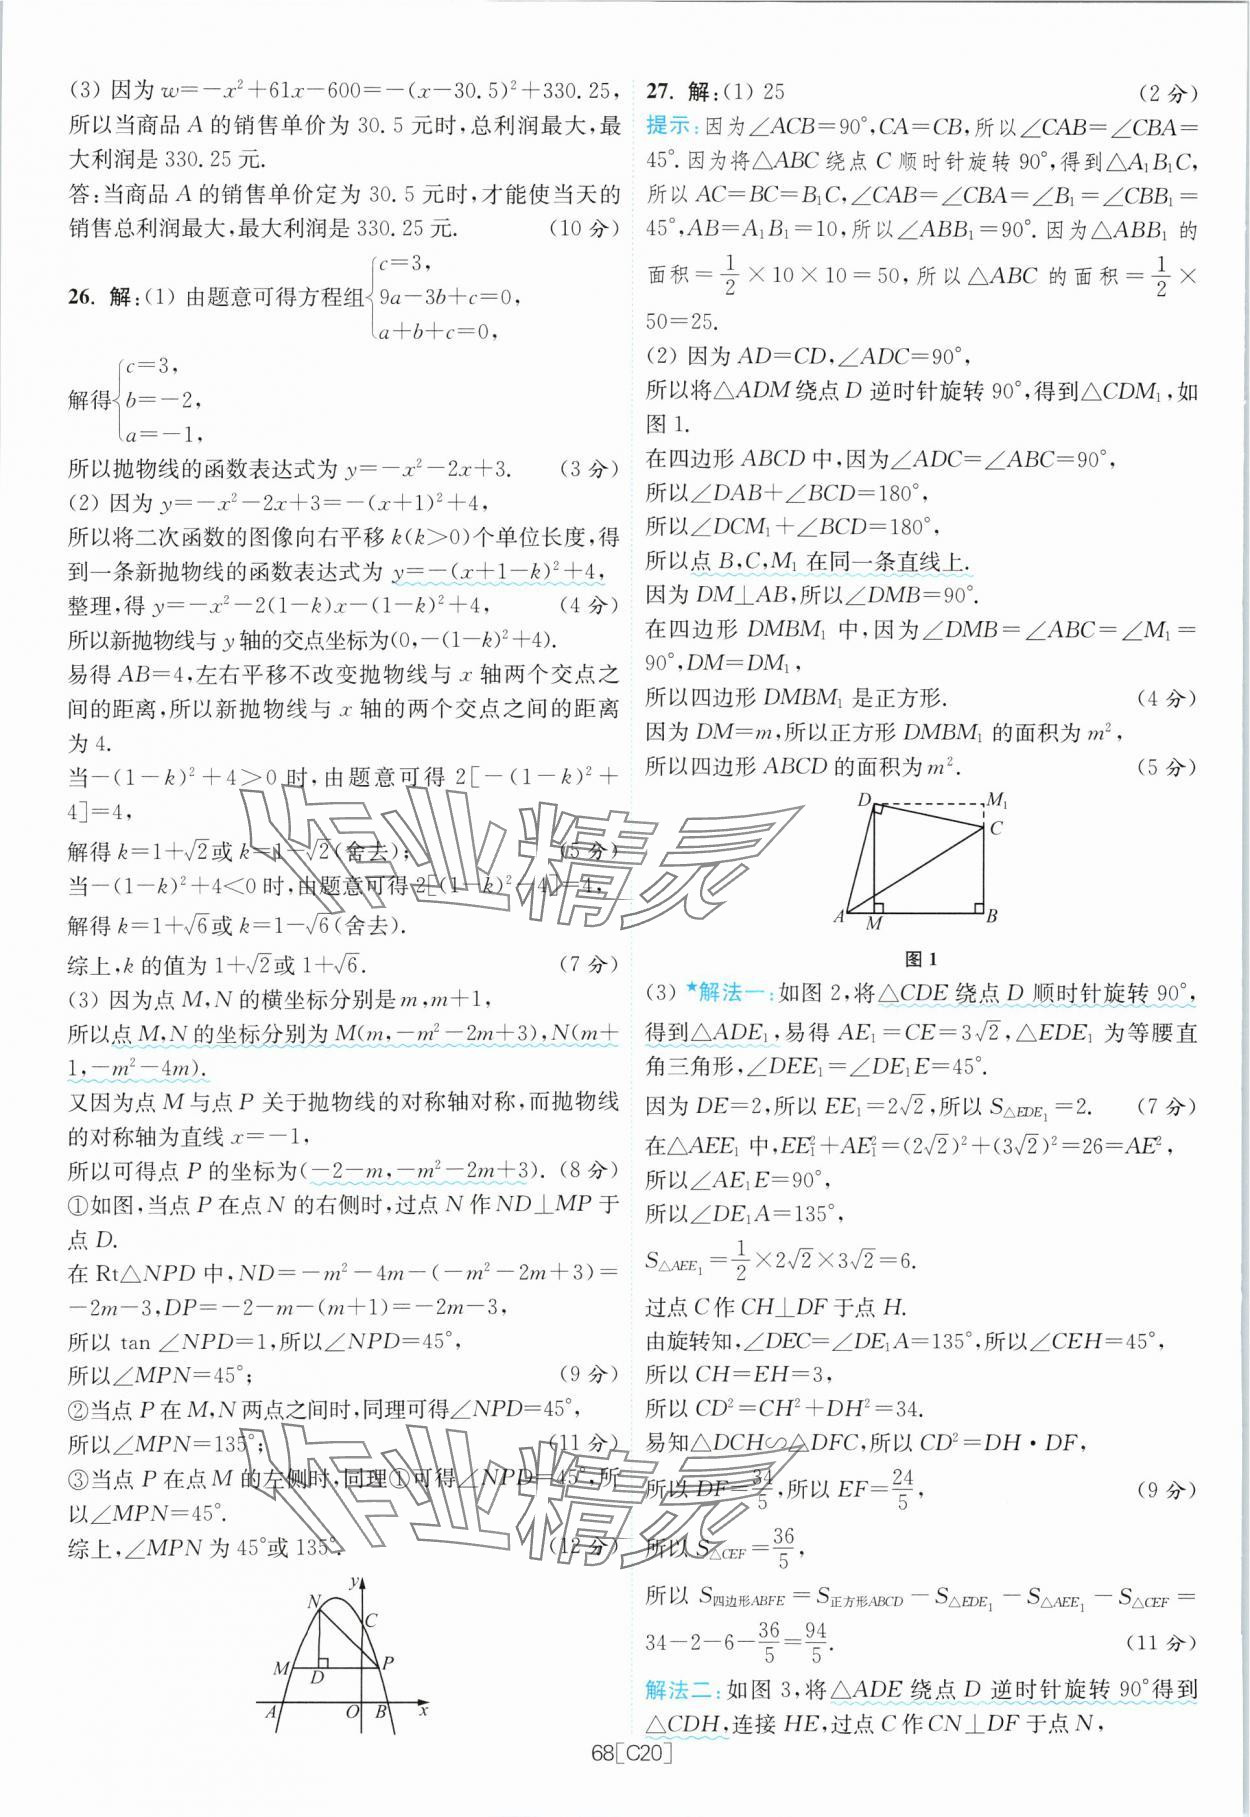 (3) 因为 w=-x²+61x-600=-(x-30.5)²+330.25,
所以当商品 A 的销售单价为 30.5 元时,总利润最大,最
大利润是 330.25 元.
答:当商品 A 的销售单价定为 30.5 元时,才能使当天的
销售总利润最大,最大利润是 330.25 元. (10 分)
26. 解:(1) 由题意可得方程组{c=3,
9a-3b+c=0,
a+b+c=0,
解得{c=3,
b=-2,
a=-1,
所以抛物线的函数表达式为 y=-x²-2x+3. (3 分)
(2) 因为 y=-x²-2x+3=-(x+1)²+4,
所以将二次函数的图像向右平移 k(k>0)个单位长度,得
到一条新抛物线的函数表达式为 y=-(x+1-k)²+4,
整理,得 y=-x²-2(1-k)x-(1-k)²+4, (4 分)
所以新抛物线与 y 轴的交点坐标为(0,-(1-k)²+4).
易得 AB=4,左右平移不改变抛物线与 x 轴两个交点之
间的距离,所以新抛物线与 x 轴的两个交点之间的距离
为 4.
当-(1-k)²+4>0 时,由题意可得 2[-(1-k)²+
4]=4,
解得 k=1+√2或 k=1-√2(舍去); (5 分)
当-(1-k)²+4<0 时,由题意可得 2[(1-k)²-4]=4,
解得 k=1+√6或 k=1-√6(舍去).
综上,k 的值为 1+√2或 1+√6. (7 分)
(3) 因为点 M,N 的横坐标分别是 m,m+1,
所以点 M,N 的坐标分别为 M(m,-m²-2m+3),N(m+
1,-m²-4m).
又因为点 M 与点 P 关于抛物线的对称轴对称,而抛物线
的对称轴为直线 x=-1,
所以可得点 P 的坐标为(-2-m,-m²-2m+3). (8 分)
①如图,当点 P 在点 N 的右侧时,过点 N 作 ND⊥MP 于
点 D.
在 Rt△NPD 中,ND=-m²-4m-(-m²-2m+3)=
-2m-3,DP=-2-m-(m+1)=-2m-3,
所以 tan ∠NPD=1,所以∠NPD=45°,
所以∠MPN=45°; (9 分)
②当点 P 在 M,N 两点之间时,同理可得∠NPD=45°,
所以∠MPN=135°; (11 分)
③当点 P 在点 M 的左侧时,同理①可得∠NPD=45°,所
以∠MPN=45°.
综上,∠MPN 为 45°或 135°. (12 分)
y
N
C
M
D
P
A
O
B
x
27. 解:(1) 25 (2 分)
提示:因为∠ACB=90°,CA=CB,所以∠CAB=∠CBA=
45°.因为将△ABC 绕点 C 顺时针旋转 90°,得到△A₁B₁C,
所以 AC=BC=B₁C,∠CAB=∠CBA=∠B₁=∠CBB₁=
45°,AB=A₁B₁=10,所以∠ABB₁=90°.因为△ABB₁ 的
面积=1/2×10×10=50,所以△ABC 的面积=1/2×
50=25.
(2) 因为 AD=CD,∠ADC=90°,
所以将△ADM 绕点 D 逆时针旋转 90°,得到△CDM₁,如
图 1.
在四边形 ABCD 中,因为∠ADC=∠ABC=90°,
所以∠DAB+∠BCD=180°,
所以∠DCM₁+∠BCD=180°,
所以点 B,C,M₁ 在同一条直线上.
因为 DM⊥AB,所以∠DMB=90°.
在四边形 DMBM₁ 中,因为∠DMB=∠ABC=∠M₁=
90°,DM=DM₁,
所以四边形 DMBM₁ 是正方形. (4 分)
因为 DM=m,所以正方形 DMBM₁ 的面积为 m²,
所以四边形 ABCD 的面积为 m². (5 分)
D
M₁
C
A
M
B
图 1
(3) ★解法一:如图 2,将△CDE 绕点 D 顺时针旋转 90°,
得到△ADE₁,易得 AE₁=CE=3√2,△EDE₁ 为等腰直
角三角形,∠DEE₁=∠DE₁E=45°.
因为 DE=2,所以 EE₁=2√2,所以 S△EDE₁=2. (7 分)
在△AEE₁ 中,EE₁²+AE₁²=(2√2)²+(3√2)²=26=AE²,
所以∠AE₁E=90°,
所以∠DE₁A=135°,
S△AEE₁=1/2×2√2×3√2=6.
过点 C 作 CH⊥DF 于点 H.
由旋转知,∠DEC=∠DE₁A=135°,所以∠CEH=45°,
所以 CH=EH=3,
所以 CD²=CH²+DH²=34.
易知△DCH∽△DFC,所以 CD²=DH·DF,
所以 DF=34/5,所以 EF=24/5, (9 分)
所以 S△CEF=36/5,
所以 S四边形ABFE=S正方形ABCD-S△EDE₁-S△AEE₁-S△CEF=
34-2-6-36/5=94/5. (11 分)
解法二:如图 3,将△ADE 绕点 D 逆时针旋转 90°得到
△CDH,连接 HE,过点 C 作 CN⊥DF 于点 N,
68[C20]
作业精灵
作业精灵